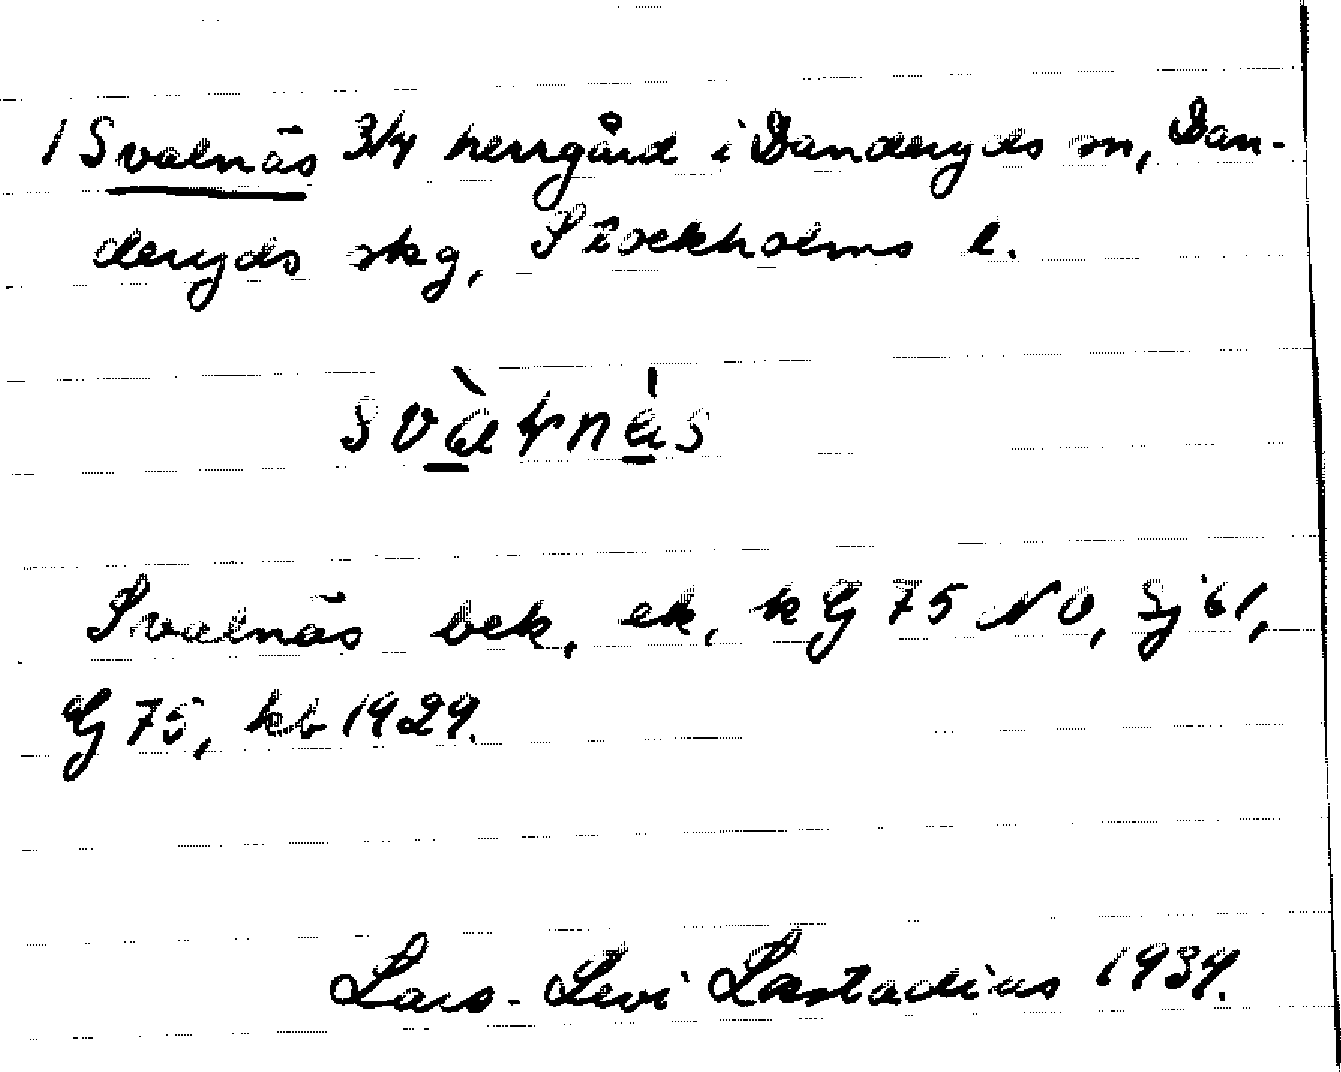 1 Svalnäs 3/4 herrgård i Danderyds sn, Dan-
deryds skg, Stockholms l.
svàlnás
Svalnäs bek, ek, k G 75 NO, Sj 61,
G 75, kb 1929.
Lars-Levi Læstadius 1934.